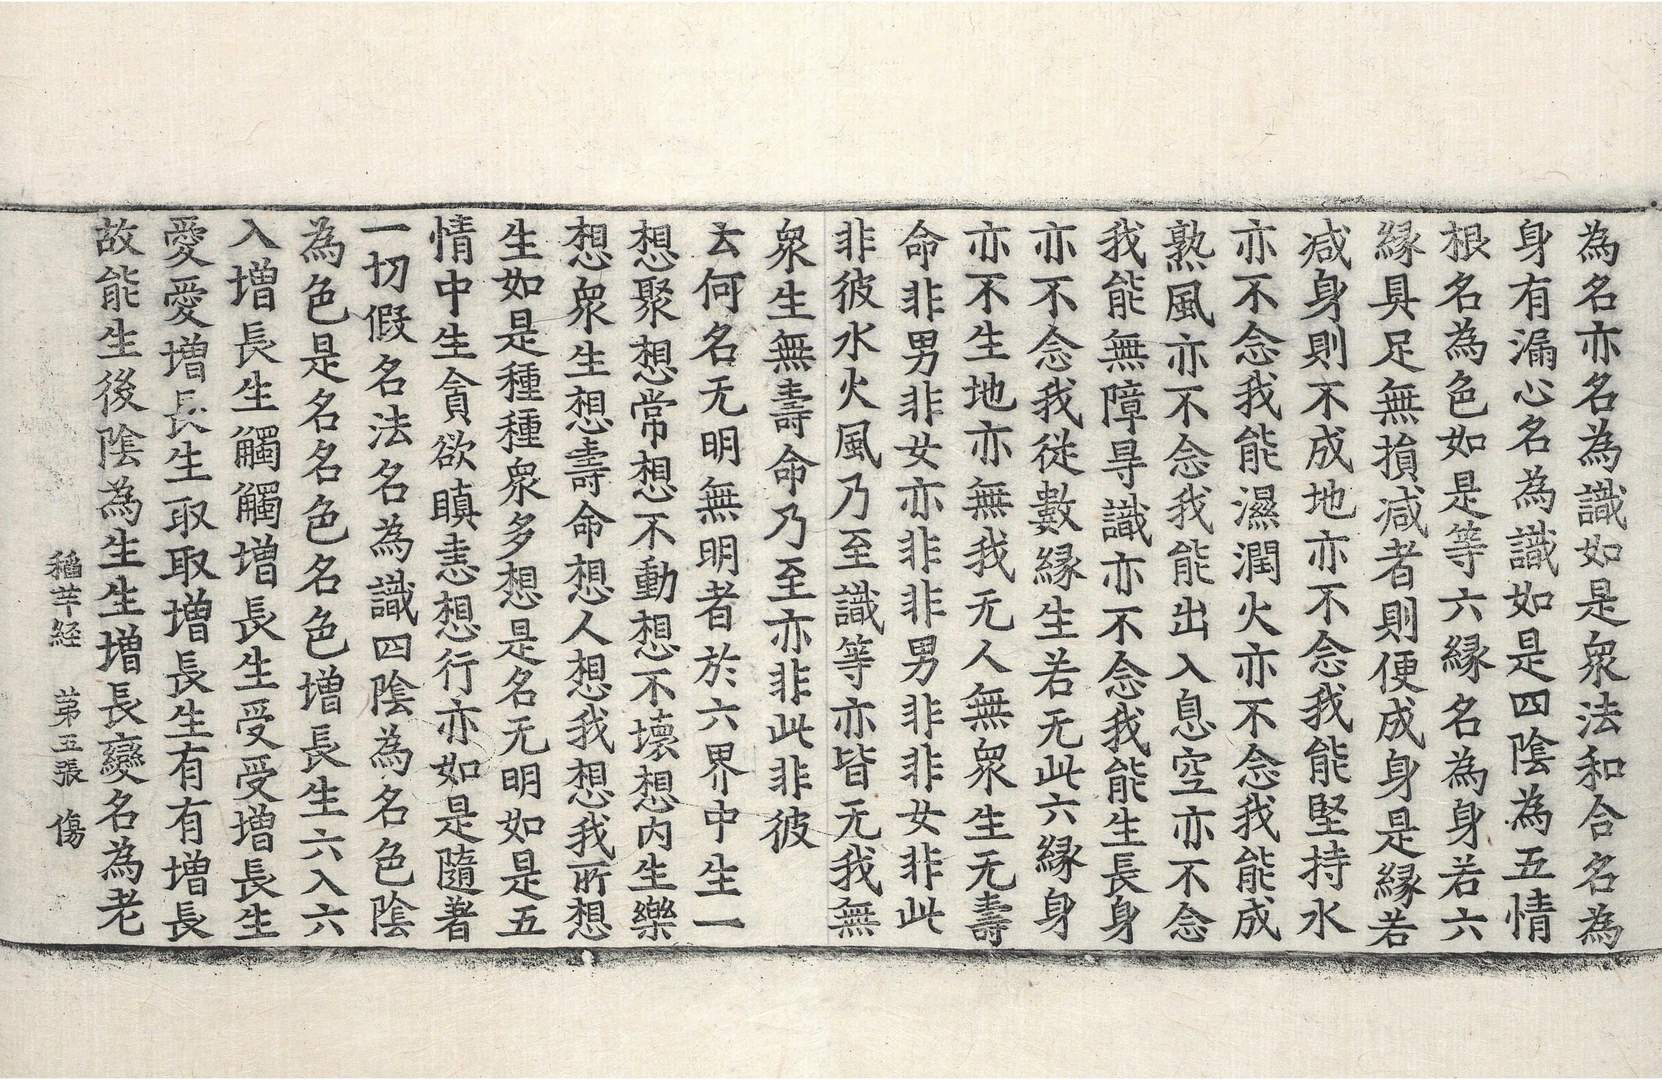 為名亦名為識如是衆法和合名為
身有漏心名為識如是四陰為五情
根名為色如是等六緣名為身若六
緣具足無損减者則便成身是緣若
减身則不成地亦不念我能堅持水
亦不念我能濕潤火亦不念我能成
熟風亦不念我能出入息空亦不念
我能無障㝵識亦不念我能生長身
亦不念我從數緣生若无此六緣身
亦不生地亦無我无人無衆生无壽
命非男非女亦非非男非非女非此
非彼水火風乃至識等亦皆无我無
衆生無壽命乃至亦非此非彼
云何名无明無明者於六界中生一
想聚想常想不動想不壞想内生樂
想衆生想壽命想人想我想我所想
生如是種種衆多想是名无明如是五
情中生貪欲瞋恚想行亦如是隨著
一切假名法名為識四陰為名色陰
為色是名名色名色增長生六入六
入增長生觸觸增長生受受增長生
愛愛增長生取取增長生有有增長
故能生後陰為生生增長變名為老
稻芉経　第五張　傷